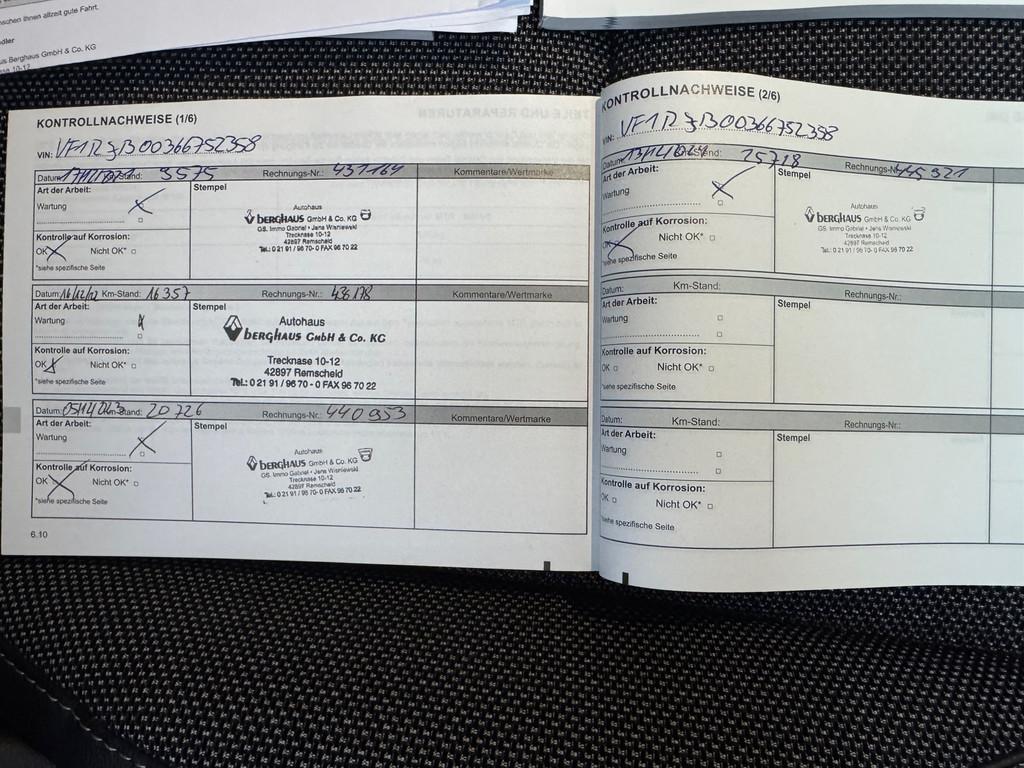 nschen Ihnen allzeit gute Fahrt.
dler
us Berghaus GmbH & Co. KG
sse 10-12
KONTROLLNACHWEISE (1/6)
VIN: VF1RJB00366752358
Datum: Km-Stand: 9575 Rechnungs-Nr.: 431164 Kommentare/Wertmarke
Art der Arbeit: Stempel
Wartung
Autohaus
BERGHAUS GmbH & Co. KG
GS. Immo Gabriel • Jens Wisniewski
Trecknase 10-12
42897 Remscheid
Tel.: 0 21 91 / 96 70 - 0 FAX 96 70 22
Kontrolle auf Korrosion:
OK Nicht OK*
*siehe spezifische Seite
Datum: Km-Stand: 16357 Rechnungs-Nr.: 436178 Kommentare/Wertmarke
Art der Arbeit: Stempel
Wartung
Autohaus
BERGHAUS GmbH & Co. KG
Trecknase 10-12
42897 Remscheid
Tel.: 0 21 91 / 96 70 - 0 FAX 96 70 22
Kontrolle auf Korrosion:
OK Nicht OK*
*siehe spezifische Seite
Datum: Km-Stand: 20726 Rechnungs-Nr.: 440953 Kommentare/Wertmarke
Art der Arbeit: Stempel
Wartung
Autohaus
BERGHAUS GmbH & Co. KG
GS. Immo Gabriel • Jens Wisniewski
Trecknase 10-12
42897 Remscheid
Tel.: 0 21 91 / 96 70 - 0 FAX 96 70 22
Kontrolle auf Korrosion:
OK Nicht OK*
*siehe spezifische Seite
6.10
KONTROLLNACHWEISE (2/6)
VIN: VF1RJB00366752358
Datum: Km-Stand: 25718 Rechnungs-Nr.: 445921
Art der Arbeit: Stempel
Wartung
Autohaus
BERGHAUS GmbH & Co. KG
GS. Immo Gabriel • Jens Wisniewski
Trecknase 10-12
42897 Remscheid
Tel.: 0 21 91 / 96 70 - 0 FAX 96 70 22
Kontrolle auf Korrosion:
OK Nicht OK*
*siehe spezifische Seite
Datum: Km-Stand: Rechnungs-Nr.:
Art der Arbeit: Stempel
Wartung
Kontrolle auf Korrosion:
OK Nicht OK*
*siehe spezifische Seite
Datum: Km-Stand: Rechnungs-Nr.:
Art der Arbeit: Stempel
Wartung
Kontrolle auf Korrosion:
OK Nicht OK*
*siehe spezifische Seite